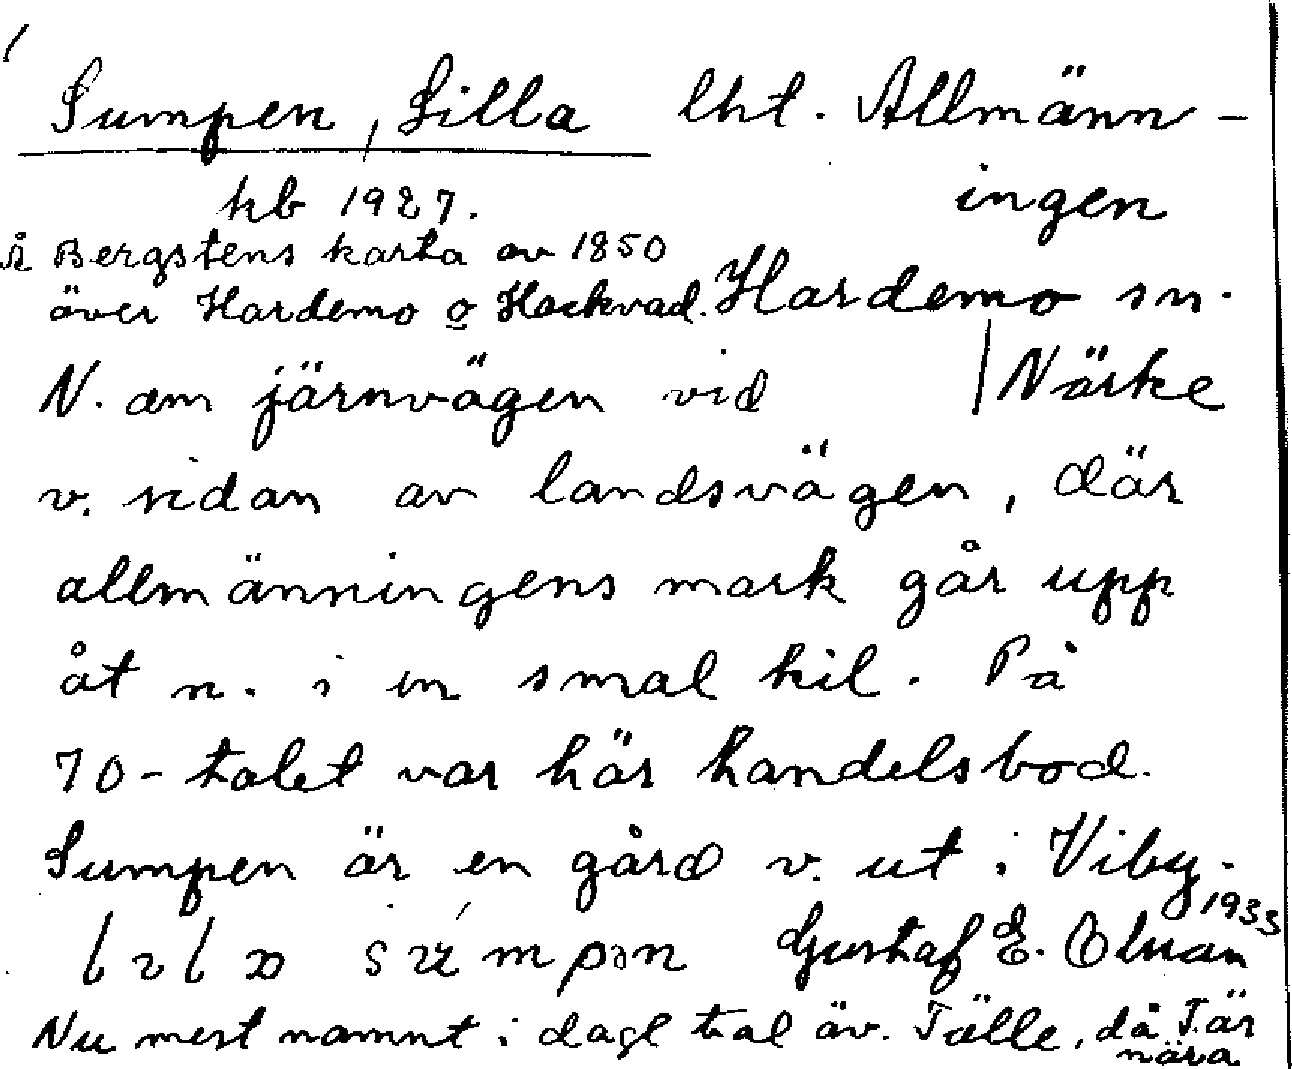 Sumpen, Lilla lht. Allmänn-
kb 1927. ingen
Å Bergstens karta av 1850
över Hardemo o Hackvad. Hardemo sn.
N. om järnvägen vid Närke
v. sidan av landsvägen, där
allmänningens mark går upp
åt n. i en smal kil. På
70-talet var här handelsbod.
Sumpen är en gård v. ut i Viby.
1933
Gustaf E. Elman
Nu mest namnt i dagl tal äv. Tälle, då T. är
nära